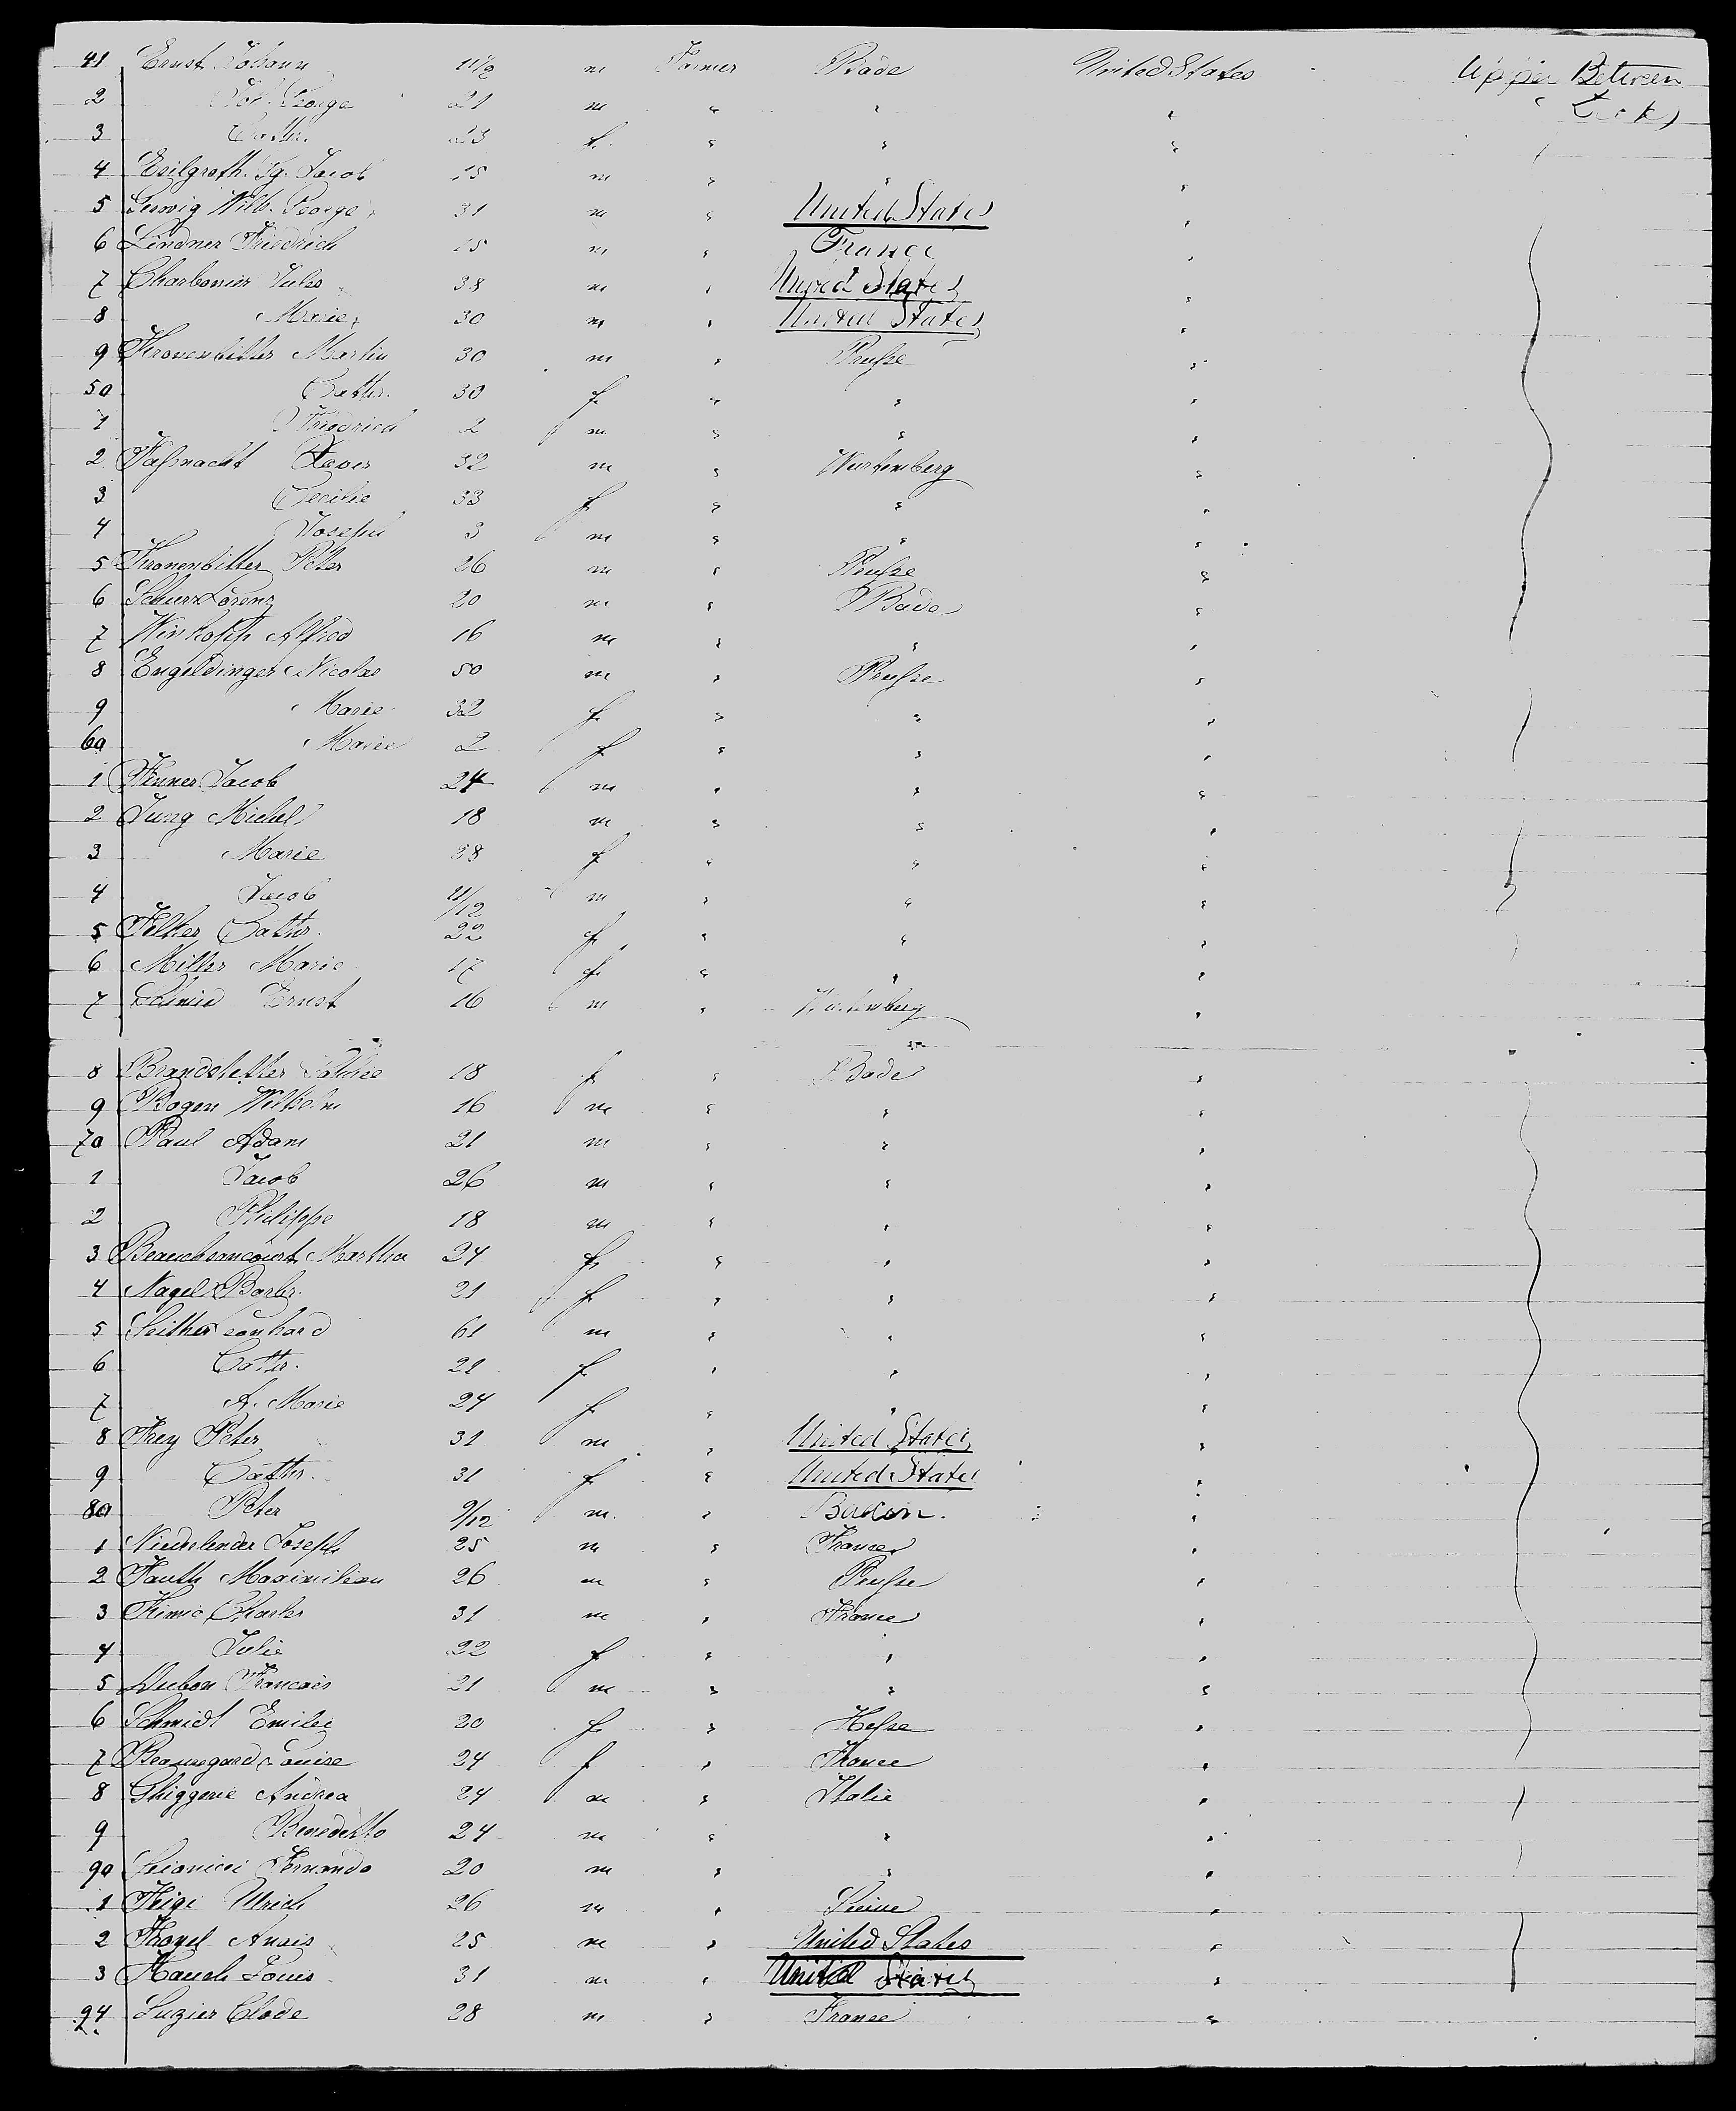 41 Ernst Johann 11/12 m Farmer Bade United States Upper Between
2 Joh. George 21 m " " " Decks
3 Cath. 23 f. " " "
4 Jacob 15 m " " "
5 Gerwig Wilh. George 31 m " United States "
6 Lindner Friedrich 15 m " France "
7 Charbonier Jules 38 m " United States "
8 Marie 30 m " United States "
9 Kronenbitter Martin 30 m " Preuße "
50 Cathr. 30 f " " "
1 Friedrich 2 m " " "
2 Faßnacht Xaver 32 m " Wurtemberg "
3 Cecilie 33 f " " "
4 Joseph 3 m " " "
5 Kronenbitter Peter 26 m " Preuße "
6 Schurr Lorenz 20 m " Bade "
7 Winkopp Alfred 16 m " " "
8 Engeldinger Nicolas 50 m " Preuße "
9 Marie 32 f " " "
60 Marie 2 f " " "
1 Jacob 24 m " " "
2 Jung Michel 18 m " " "
3 Marie 28 f " " "
4 Jacob 11/12 m " " "
5 Felker Cathr. 22 f " " "
6 Miller Marie 17 f " " "
7 Schmid Ernst 16 m " Wurtemberg "
8 Brandstetter 18 f " Bade "
9 Bogen Wilhelm 16 m " " "
70 Paul Adam 21 m " " "
1 Jacob 26 m " " "
2 Philippe 18 m " " "
3 Martha 24 f " " "
4 Nagel Barbr. 21 f " " "
5 Seither Leonhard 61 m " " "
6 Cathr. 21 f " " "
7 A. Marie 24 f " " "
8 Frey Peter 31 m " United States "
9 Cathr. 31 f " United States "
80 Peter 9/12 m. " Baden. "
1 Niederlender Joseph 25 m " France "
2 Fauth Maximilian 26 m " Preuße "
3 Charles 31 m " France "
4 Julie 22 f " " "
5 Dubon Francois 21 m " " "
6 Schmidt Emilie 20 f " Heße "
7 Beauregard Louise 24 f " France "
8 Andrea 24 m " Italie "
9 Benedetto 24 m " " "
90 Fernando 20 m " " "
1 Feigi Ulrich 26 m " "
2 Anais 25 m " United States "
3 Hauch Louis 31 m " United States "
94 Luzier Clode 28 m " France "